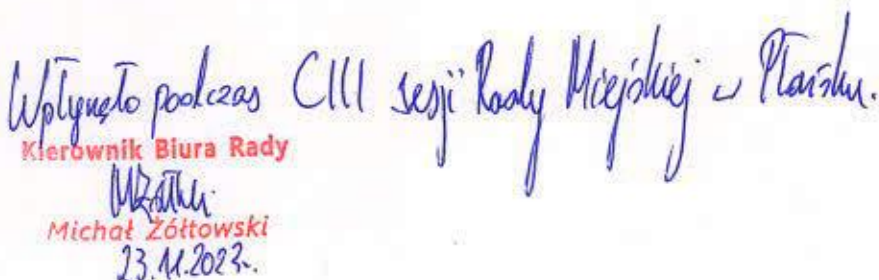 Wpłynęło podczas CIII sesji Rady Miejskiej w Płońsku.
Kierownik Biura Rady
Michał Żółtowski
23.11.2023r.